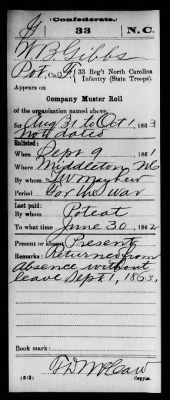 (Confederate.)
G 33 N.C.
W B Gibbs
Pvt, Co. F, 33 Reg't North Carolina
Infantry (State Troops).
Appears on
Company Muster Roll
of the organization named above,
for Aug 31 to Oct 1, 1863
not dated
Enlisted:
When Sept 9, 1861
Where Middleton, NC
By whom Mayhew
Period For the War
Last paid:
By whom Poteat
To what time June 30, 1862
Present or absent Present
Remarks: Returned from
absence without
leave Sept 1, 1863.
Book mark:
(642)
Copyist.